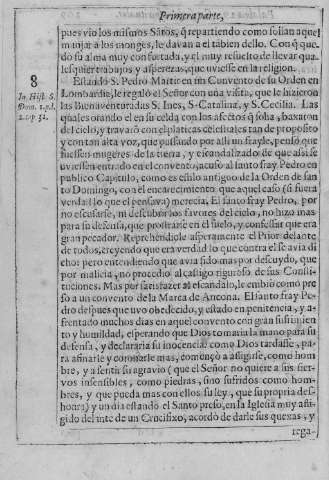 Primera parte,
pues vio los mismos Sãtos, q̃ repartiendo como solian aquel
manjar a los monges, le davan a el tãbien dello. Con q̃ que-
dò su alma muy confortada, y el muy resuelto de llevar qua-
lesquier trabajos y asperezas, que uviesse en la religion.
8
Estando S. Pedro Martir en sin Convento de su Orden en
In Hist. S.
Lombardia, le regalò el Señor con una visita, que le hizieron
Dom. 1. p. l.
las Buenaventuradas S. Ines, S. Catalina, y S. Cecilia. Las
2. cap. 52.
quales orando el en su celda con los afectos q̃ solia, baxaron
del cielo, y travarõ con el platicas celestiales tan de proposito
y con tan alta voz, que passando por alli un frayle, pensò que
fuessen mugeres de la tierra, y escandalizado de que assi se
uviessen entrado en el convento, acusò al santo fray Pedro en
publico Capitulo, como es estilo antiguo de la Orden de san-
to Domingo, con el encarecimiento que aquel caso (si fuera
verdad lo que el pensava) merecia. El santo fray Pedro, por
no escusarse, ni descubrir los favores del cielo, no hizo mas
para su defensa, que prostrarse en el suelo, y confessar que era
gran pecador. Reprehendiòle asperamente el Prior delante
de todos, creyendo que era verdad lo que contra el se avia di-
cho: pero entendiendo que avia sido mas por descuydo, que
por malicia, no procediò al castigo riguroso de sus Consti-
tuciones. Mas por satisfazer al escandalo, le embiò como pre-
so a un convento de la Marca de Ancona. El santo fray Pe-
dro despues que uvo obedecido, y estado en penitencia, y a-
frentado muchos dias en aquel convento con gran sufrimiento
y humildad, esperando que Dios tomaria la mano para su
defensa, y declararia su inocencia: como Dios tardasse, pa-
ra afinarle y coronarle mas, començò a afligirse, como hom
bre, y a sentir su agravio (que el Señor no quiere a sus sier-
vos insensibles, como piedras, sino sufridos como hom-
bres, y que pueda mas con ellos su ley, que su propria des-
honra) y un dia estando el Santo preso, en la Iglesia muy afli-
gido delante de un Crucifixo, acordò de darle sus quexas, y
rega-